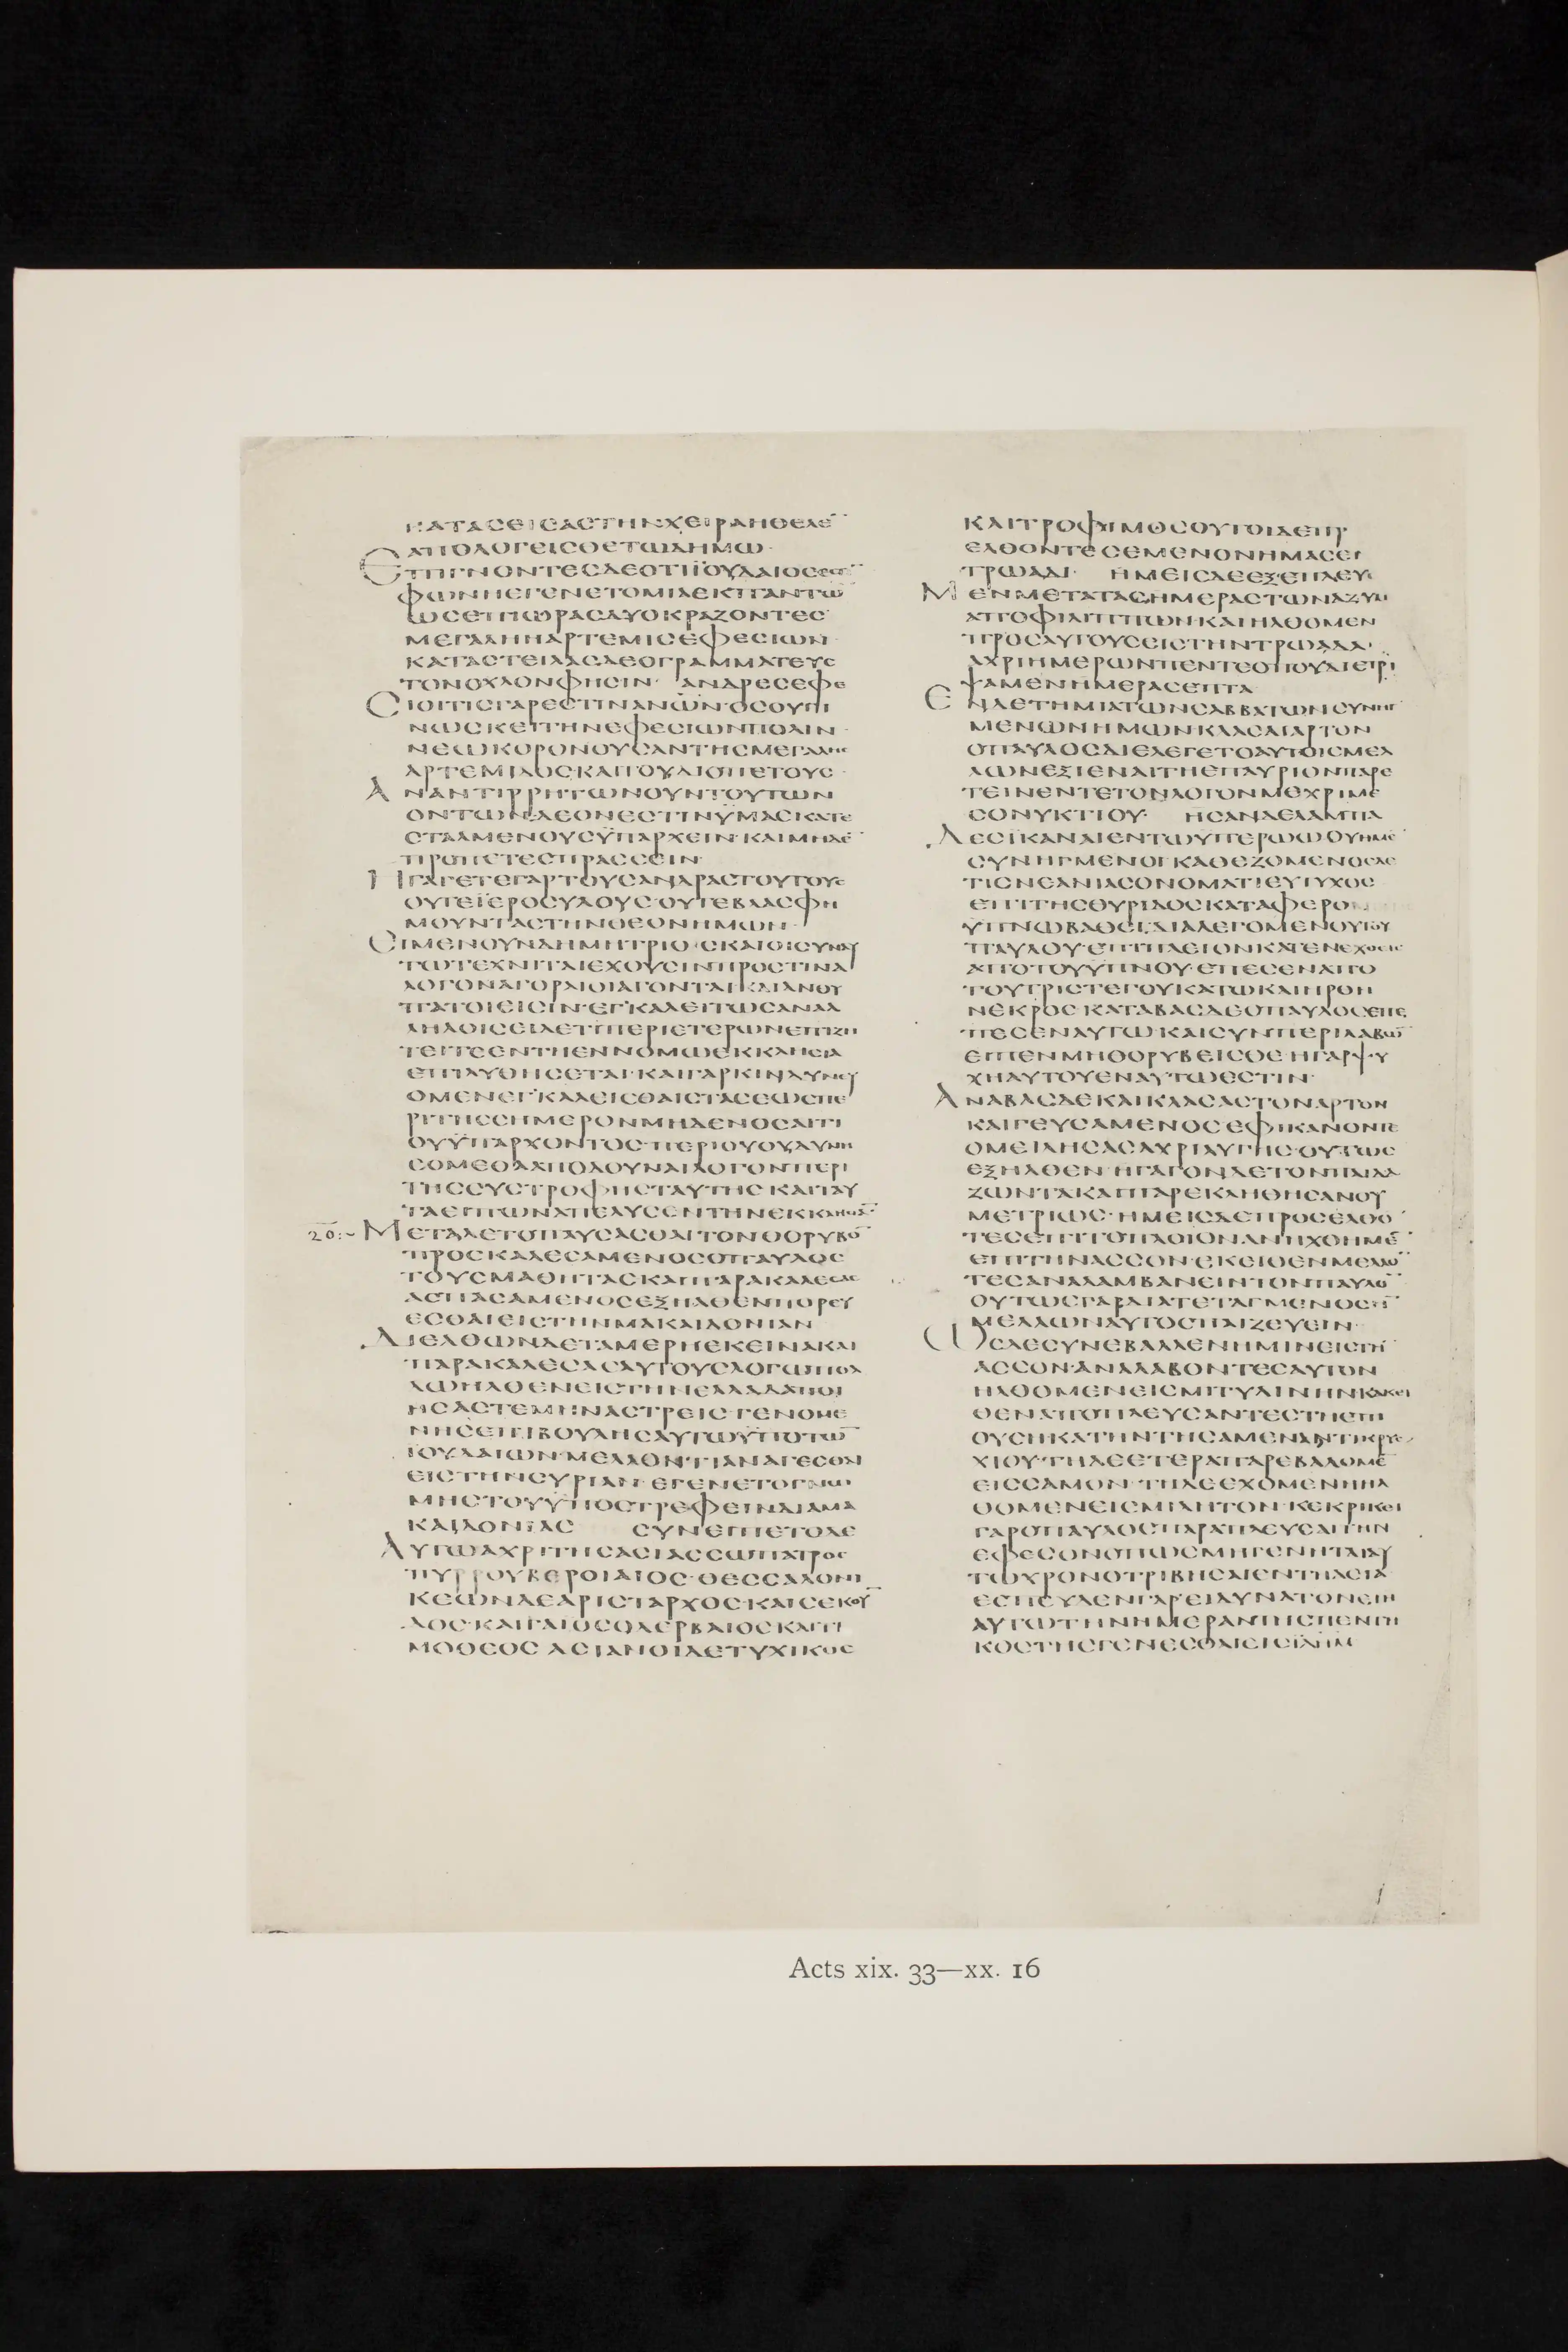 ΚΑΤΑΣΕΙΣΑΣΤΗΝΧΕΙΡΑΗΘΕΛΕ̅
ΑΠΟΛΟΓΕΙΣΘΕΤΩΔΗΜΩ·
ΕΠΙΓΝΟΝΤΕΣΔΕΟΤΙΪΟΥΔΑΙΟΣΕΣΤ̅
ΦΩΝΗΕΓΕΝΕΤΟΜΙΑΕΚΠΑΝΤΩ̅
ΩΣΕΠΙΩΡΑΣΔΥΟΚΡΑΖΟΝΤΕΣ·
ΜΕΓΑΛΗΗΑΡΤΕΜΙΣΕΦΕΣΙΩΝ·
ΚΑΤΑΣΤΕΙΛΑΣΔΕΟΓΡΑΜΜΑΤΕΥΣ
ΤΟΝΟΧΛΟΝΦΗΣΙΝ· ΑΝΔΡΕΣΕΦΕ
ΣΙΟΙΤΙΣΓΑΡΕΣΤΙΝΑΝΩ̅Ν·ΟΣΟΥΓΙ
ΝΩΣΚΕΙΤΗΝΕΦΕΣΙΩΝΠΟΛΙΝ·
ΝΕΩΚΟΡΟΝΟΥΣΑΝΤΗΣΜΕΓΑΛΗΣ
ΑΡΤΕΜΙΔΟΣ·ΚΑΙΤΟΥΔΙΟΠΕΤΟΥΣ·
ΑΝΑΝΤΙΡΡΗΤΩΝΟΥΝΤΟΥΤΩΝ
ΟΝΤΩΝ·ΔΕΟΝΕΣΤΙΝΫΜΑΣΚΑΤΕ
ΣΤΑΛΜΕΝΟΥΣΫΠΑΡΧΕΙΝ·ΚΑΙΜΗΔΕ̅
ΠΡΟΠΕΤΕΣΠΡΑΣΣΕΙΝ·
ΗΓΑΓΕΤΕΓΑΡΤΟΥΣΑΝΔΡΑΣΤΟΥΤΟΥΣ
ΟΥΤΕΪΕΡΟΣΥΛΟΥΣ·ΟΥΤΕΒΛΑΣΦΗ
ΜΟΥΝΤΑΣΤΗΝΘΕΟΝΗΜΩΝ·
ΟΙΜΕΝΟΥΝΔΗΜΗΤΡΙΟΣΚΑΙΟΙΣΥΝΑΥ
ΤΩΤΕΧΝΙΤΑΙΕΧΟΥΣΙΝΠΡΟΣΤΙΝΑ
ΛΟΓΟΝΑΓΟΡΑΙΟΙΑΓΟΝΤΑΙΚΑΙΑΝΘΥ
ΠΑΤΟΙΕΙΣΙΝ·ΕΓΚΑΛΕΙΤΩΣΑΝΑΛ
ΛΗΛΟΙΣΕΙΔΕΤΙΠΕΡΙΕΤΕΡΩΝΕΠΙΖΗ
ΤΕΙΤΕΕΝΤΗΕΝΝΟΜΩΕΚΚΛΗΣΙΑ
ΕΠΙΛΥΘΗΣΕΤΑΙ·ΚΑΙΓΑΡΚΙΝΔΥΝΕΥ
ΟΜΕΝΕΓΚΑΛΕΙΣΘΑΙΣΤΑΣΕΩΣΠΕ
ΡΙΤΗΣΣΗΜΕΡΟΝΜΗΔΕΝΟΣΑΙΤΙ
ΟΥΫΠΑΡΧΟΝΤΟΣ·ΠΕΡΙΟΥΟΥΔΥΝΗ
ΣΟΜΕΘΑΑΠΟΔΟΥΝΑΙΛΟΓΟΝΠΕΡΙ
ΤΗΣΣΥΣΤΡΟΦΗΣΤΑΥΤΗΣ·ΚΑΙΤΑΥ
ΤΑΕΙΠΩΝΑΠΕΛΥΣΕΝΤΗΝΕΚΚΛΗΣΙΑ̅·
20:~ ΜΕΤΑΔΕΤΟΠΑΥΣΑΣΘΑΙΤΟΝΘΟΡΥΒΟ̅
ΠΡΟΣΚΑΛΕΣΑΜΕΝΟΣΟΠΑΥΛΟΣ
ΤΟΥΣΜΑΘΗΤΑΣΚΑΙΠΑΡΑΚΑΛΕΣΑΣ
ΑΣΠΑΣΑΜΕΝΟΣΕΞΗΛΘΕΝΠΟΡΕΥ
ΕΣΘΑΙΕΙΣΤΗΝΜΑΚΑΙΔΟΝΙΑΝ
ΔΙΕΛΘΩΝΔΕΤΑΜΕΡΗΕΚΕΙΝΑΚΑΙ
ΠΑΡΑΚΑΛΕΣΑΣΑΥΤΟΥΣΛΟΓΩΠΟΛ
ΛΩΗΛΘΕΝΕΙΣΤΗΝΕΛΛΑΔΑΠΟΙ
ΗΣΑΣΤΕΜΗΝΑΣΤΡΕΙΣ·ΓΕΝΟΜΕ
ΝΗΣΕΠΙΒΟΥΛΗΣΑΥΤΩΫΠΟΤΩ̅
ΙΟΥΔΑΙΩΝ·ΜΕΛΛΟΝΤΙΑΝΑΓΕΣΘΑΙ
ΕΙΣΤΗΝΣΥΡΙΑΝ·ΕΓΕΝΕΤΟΓΝΩ
ΜΗΣΤΟΥΫΠΟΣΤΡΕΦΕΙΝΔΙΑΜΑ
ΚΑΙΔΟΝΙΑΣ ΣΥΝΕΙΠΕΤΟΔΕ
ΑΥΤΩΑΧΡΙΤΗΣΑΣΙΑΣΣΩΠΑΤΡΟΣ
ΠΥΡΡΟΥΒΕΡΟΙΑΙΟΣ·ΘΕΣΣΑΛΟΝΙ
ΚΕΩΝΔΕΑΡΙΣΤΑΡΧΟΣ·ΚΑΙΣΕΚΟΥ̅
ΔΟΣ·ΚΑΙΓΑΙΟΣΟΔΕΡΒΑΙΟΣΚΑΙΤΙ
ΜΟΘΕΟΣ ΑΣΙΑΝΟΙΔΕΤΥΧΙΚΟΣ
ΚΑΙΤΡΟΦΙΜΟΣΟΥΤΟΙΔΕΠΡ
ΕΛΘΟΝΤΕΣΕΜΕΝΟΝΗΜΑΣΕΝ
ΤΡΩΑΔΙ· ΗΜΕΙΣΔΕΕΞΕΠΛΕΥ
ΜΕΝΜΕΤΑΤΑΣΗΜΕΡΑΣΤΩΝΑΖΥΜ
ΑΠΟΦΙΛΙΠΠΩΝ·ΚΑΙΗΛΘΟΜΕΝ
ΠΡΟΣΑΥΤΟΥΣΕΙΣΤΗΝΤΡΩΑΔΑ·
ΑΧΡΙΗΜΕΡΩΝΠΕΝΤΕΟΠΟΥΔΙΕΤΡΙ
ΨΑΜΕΝΗΜΕΡΑΣΕΠΤΑ
ΕΝΔΕΤΗΜΙΑΤΩΝΣΑΒΒΑΤΩΝΣΥΝΗΓ
ΜΕΝΩΝΗΜΩΝΚΛΑΣΑΙΑΡΤΟΝ
ΟΠΑΥΛΟΣΔΙΕΛΕΓΕΤΟΑΥΤΟΙΣΜΕΛ
ΛΩΝΕΞΙΕΝΑΙΤΗΕΠΑΥΡΙΟΝΠΑΡΕ
ΤΕΙΝΕΝΤΕΤΟΝΛΟΓΟΝΜΕΧΡΙΜΕ
ΣΟΝΥΚΤΙΟΥ· ΗΣΑΝΔΕΛΑΜΠΑ
ΔΕΣΪΚΑΝΑΙΕΝΤΩΫΠΕΡΩΩΟΥΗΜΕ̅
ΣΥΝΗΓΜΕΝΟΙ·ΚΑΘΕΖΟΜΕΝΟΣΔΕ
ΤΙΣΝΕΑΝΙΑΣΟΝΟΜΑΤΙΕΥΤΥΧΟΣ
ΕΠΙΤΗΣΘΥΡΙΔΟΣΚΑΤΑΦΕΡΟ
ΥΠΝΩΒΑΘΕΙ·ΔΙΑΛΕΓΟΜΕΝΟΥΤΟΥ
ΠΑΥΛΟΥ·ΕΠΙΠΛΕΙΟΝΚΑΤΕΝΕΧΘΕΙΣ
ΑΠΟΤΟΥΫΠΝΟΥ·ΕΠΕΣΕΝΑΠΟ
ΤΟΥΤΡΙΣΤΕΓΟΥΚΑΤΩΚΑΙΗΡΘΗ
ΝΕΚΡΟΣ·ΚΑΤΑΒΑΣΔΕΟΠΑΥΛΟΣΕΠΕ
ΠΕΣΕΝΑΥΤΩ·ΚΑΙΣΥΝΠΕΡΙΛΑΒΩ̅
ΕΙΠΕΝΜΗΘΟΡΥΒΕΙΣΘΕ·ΗΓΑΡΨΥ
ΧΗΑΥΤΟΥΕΝΑΥΤΩΕΣΤΙΝ·
ΑΝΑΒΑΣΔΕΚΑΙΚΛΑΣΑΣΤΟΝΑΡΤΟΝ
ΚΑΙΓΕΥΣΑΜΕΝΟΣΕΦΙΚΑΝΟΝΤΕ
ΟΜΕΙΛΗΣΑΣΑΧΡΙΑΥΓΗΣ·ΟΥΤΩΣ
ΕΞΗΛΘΕΝ·ΗΓΑΓΟΝΔΕΤΟΝΠΑΙΔΑ
ΖΩΝΤΑΚΑΙΠΑΡΕΚΛΗΘΗΣΑΝΟΥ
ΜΕΤΡΙΩΣ·ΗΜΕΙΣΔΕΠΡΟΣΕΛΘΟ̅
ΤΕΣΕΠΙΤΟΠΛΟΙΟΝΑΝΗΧΘΗΜΕ̅
ΕΠΙΤΗΝΑΣΣΟΝ·ΕΚΕΙΘΕΝΜΕΛΛΟ̅
ΤΕΣΑΝΑΛΑΜΒΑΝΕΙΝΤΟΝΠΑΥΛΟ̅
ΟΥΤΩΣΓΑΡΔΙΑΤΕΤΑΓΜΕΝΟΣΗ̅
ΜΕΛΛΩΝΑΥΤΟΣΠΑΙΖΕΥΕΙΝ·
ΩΣΔΕΣΥΝΕΒΑΛΛΕΝΗΜΙΝΕΙΣΤΗ̅
ΑΣΣΟΝ·ΑΝΑΛΑΒΟΝΤΕΣΑΥΤΟΝ
ΗΛΘΟΜΕΝΕΙΣΜΙΤΥΛΙΝΗΝΚΑΚΕΙ
ΘΕΝΑΠΟΠΛΕΥΣΑΝΤΕΣΤΗΕΠΙ
ΟΥΣΗΚΑΤΗΝΤΗΣΑΜΕΝΑΝΤΙΚΡΥΣ
ΧΙΟΥ·ΤΗΔΕΕΤΕΡΑΠΑΡΕΒΑΛΟΜΕ̅
ΕΙΣΣΑΜΟΝ·ΤΗΔΕΕΧΟΜΕΝΗΗΛ
ΘΟΜΕΝΕΙΣΜΙΛΗΤΟΝ·ΚΕΚΡΙΚΕΙ
ΓΑΡΟΠΑΥΛΟΣΠΑΡΑΠΛΕΥΣΑΙΤΗΝ
ΕΦΕΣΟΝΟΠΩΣΜΗΓΕΝΗΤΑΙΑΥ
ΤΩΧΡΟΝΟΤΡΙΒΗΣΑΙΕΝΤΗΑΣΙΑ
ΕΣΠΕΥΔΕΝΓΑΡΕΙΔΥΝΑΤΟΝΕΙΗ
ΑΥΤΩΤΗΝΗΜΕΡΑΝΤΗΣΠΕΝΤΗ
ΚΟΣΤΗΣΓΕΝΕΣΘΑΙΕΙΣΙΛΗΜ
Acts xix. 33—xx. 16